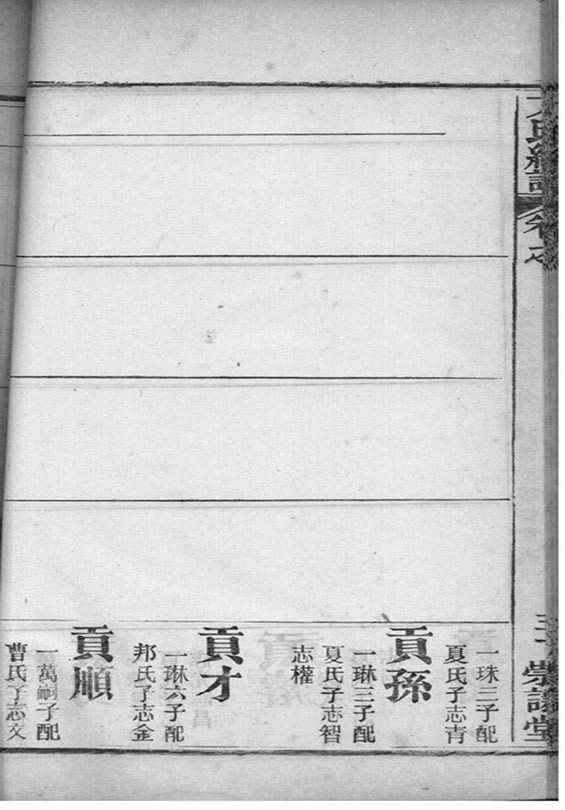 氏
卷之
堂
一珠三子配
夏氏子志青
貢孫
一琳三子配
夏氏子志智
志權
貢才
一琳六子配
邦氏子志金
貢順
一萬嗣子配
曹氏子志文